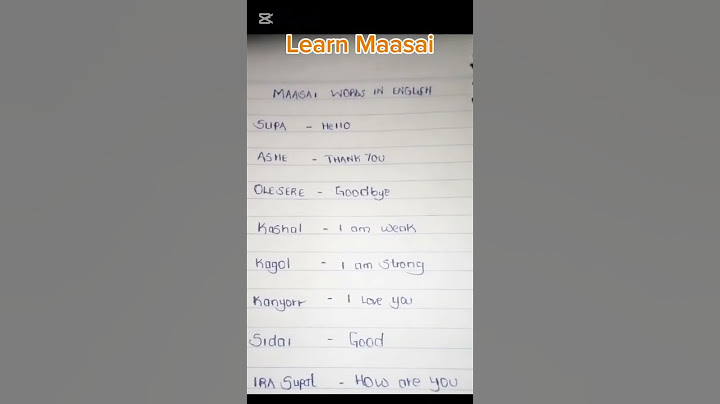 Learn Maasai
MAASAI WORDS IN ENGLISH
SUPA - Hello
ASHE - THANK YOU
OLESERE - Goodbye
Kashal - I am weak
Kagol - I am Strong
Kanyorr - I Love you
Sidai - Good
IRA Supat - How are you